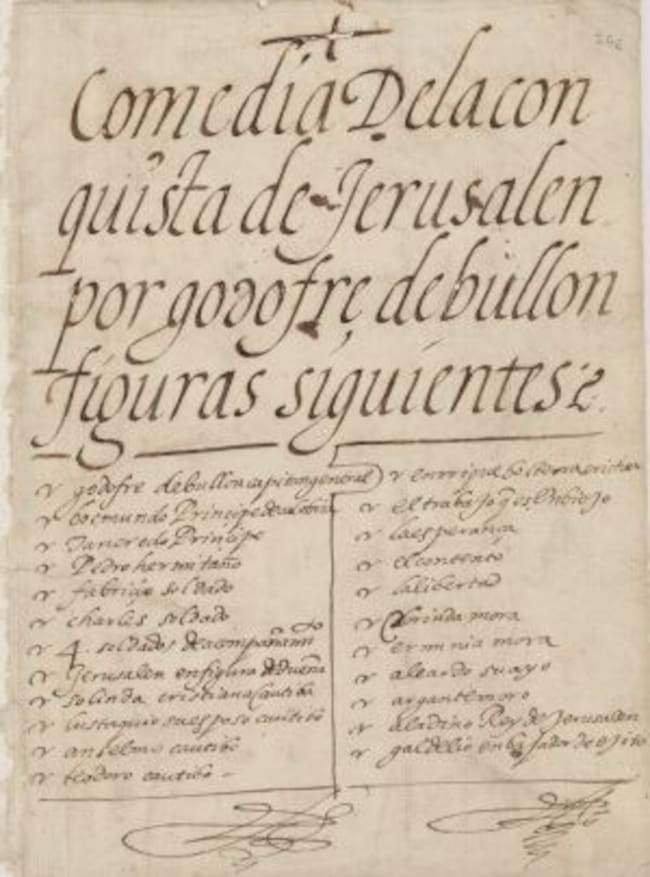 Comedia Delacon
quista de Jerusalen
por godofre debullon
figuras siguientes
godofre debullon capitan general
boemundo Principe de
Tancredo Principe
Pedro hermitaño
fabriçio soldado
charles soldado
4. soldados de acompañami to
Jerusalen en figura de Dueña
solinda cristiana cautiba
lustaquio su esposo cautibo
anselmo cautibo
teodoro cautibo
enrrique
el trabajo q es Un biejo
la esperança
el contento
la libertad
Clorinda mora
erminia mora
aleardo suayo
argante moro
aladino Rey de Jerusalen
galdelio enbajador de ejito